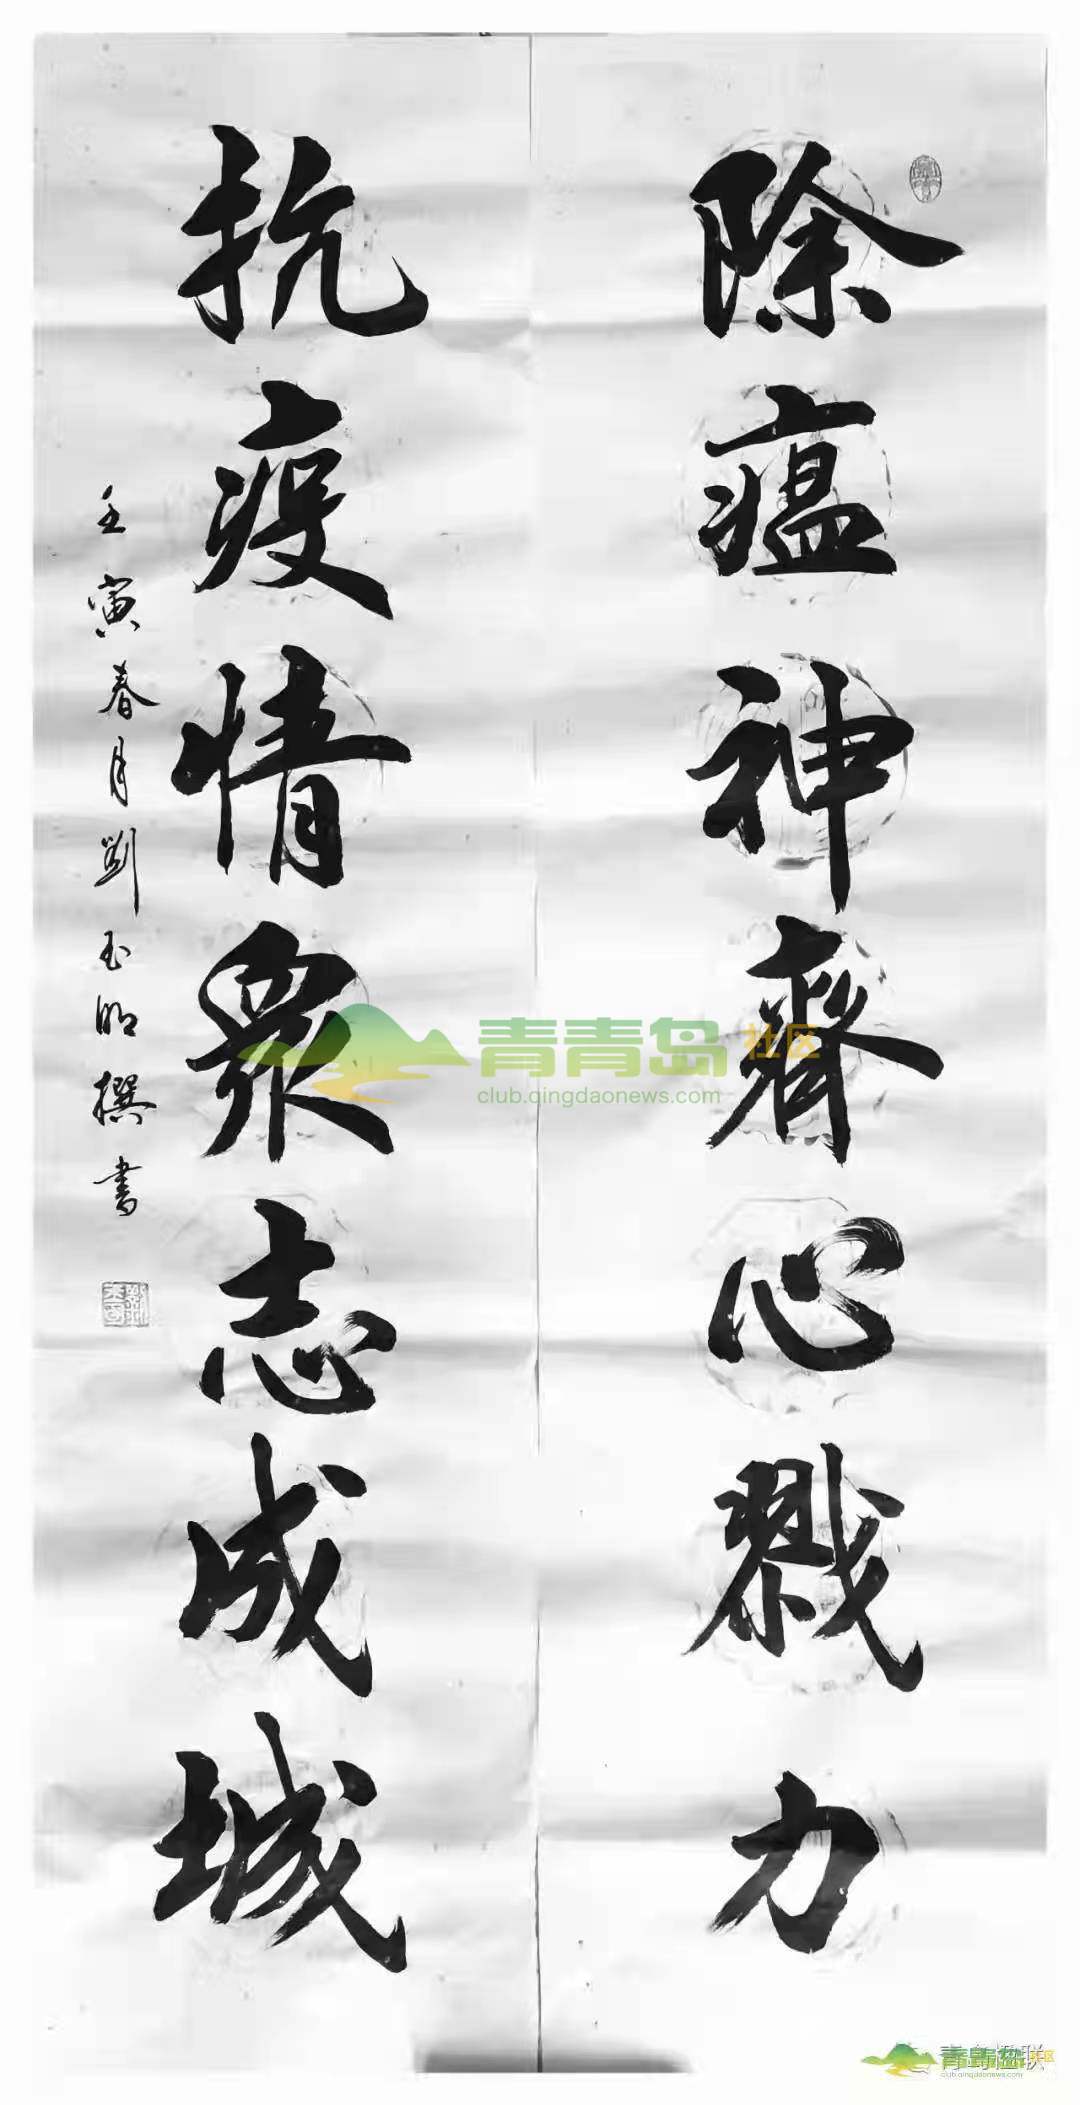 除瘟神齊心戮力
抗疫情眾志成城
壬寅春月劉玉明撰書
青青岛社区
club.qingdaonews.com
青青岛社区
club.qingdaonews.com